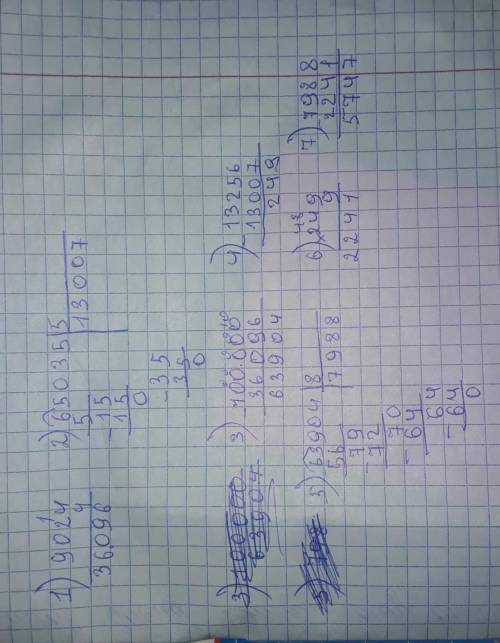 1) 9024
4
36096
2) 65035 5
5 13007
-15
15
0
-35
35
0
3) 100000
63904
3) -100.000
36096
63904
4) -13256
13007
249
5) -63904 8
56 7988
-79
72
-70
64
-64
64
0
6) x249
9
2241
7) -7988
2241
5747